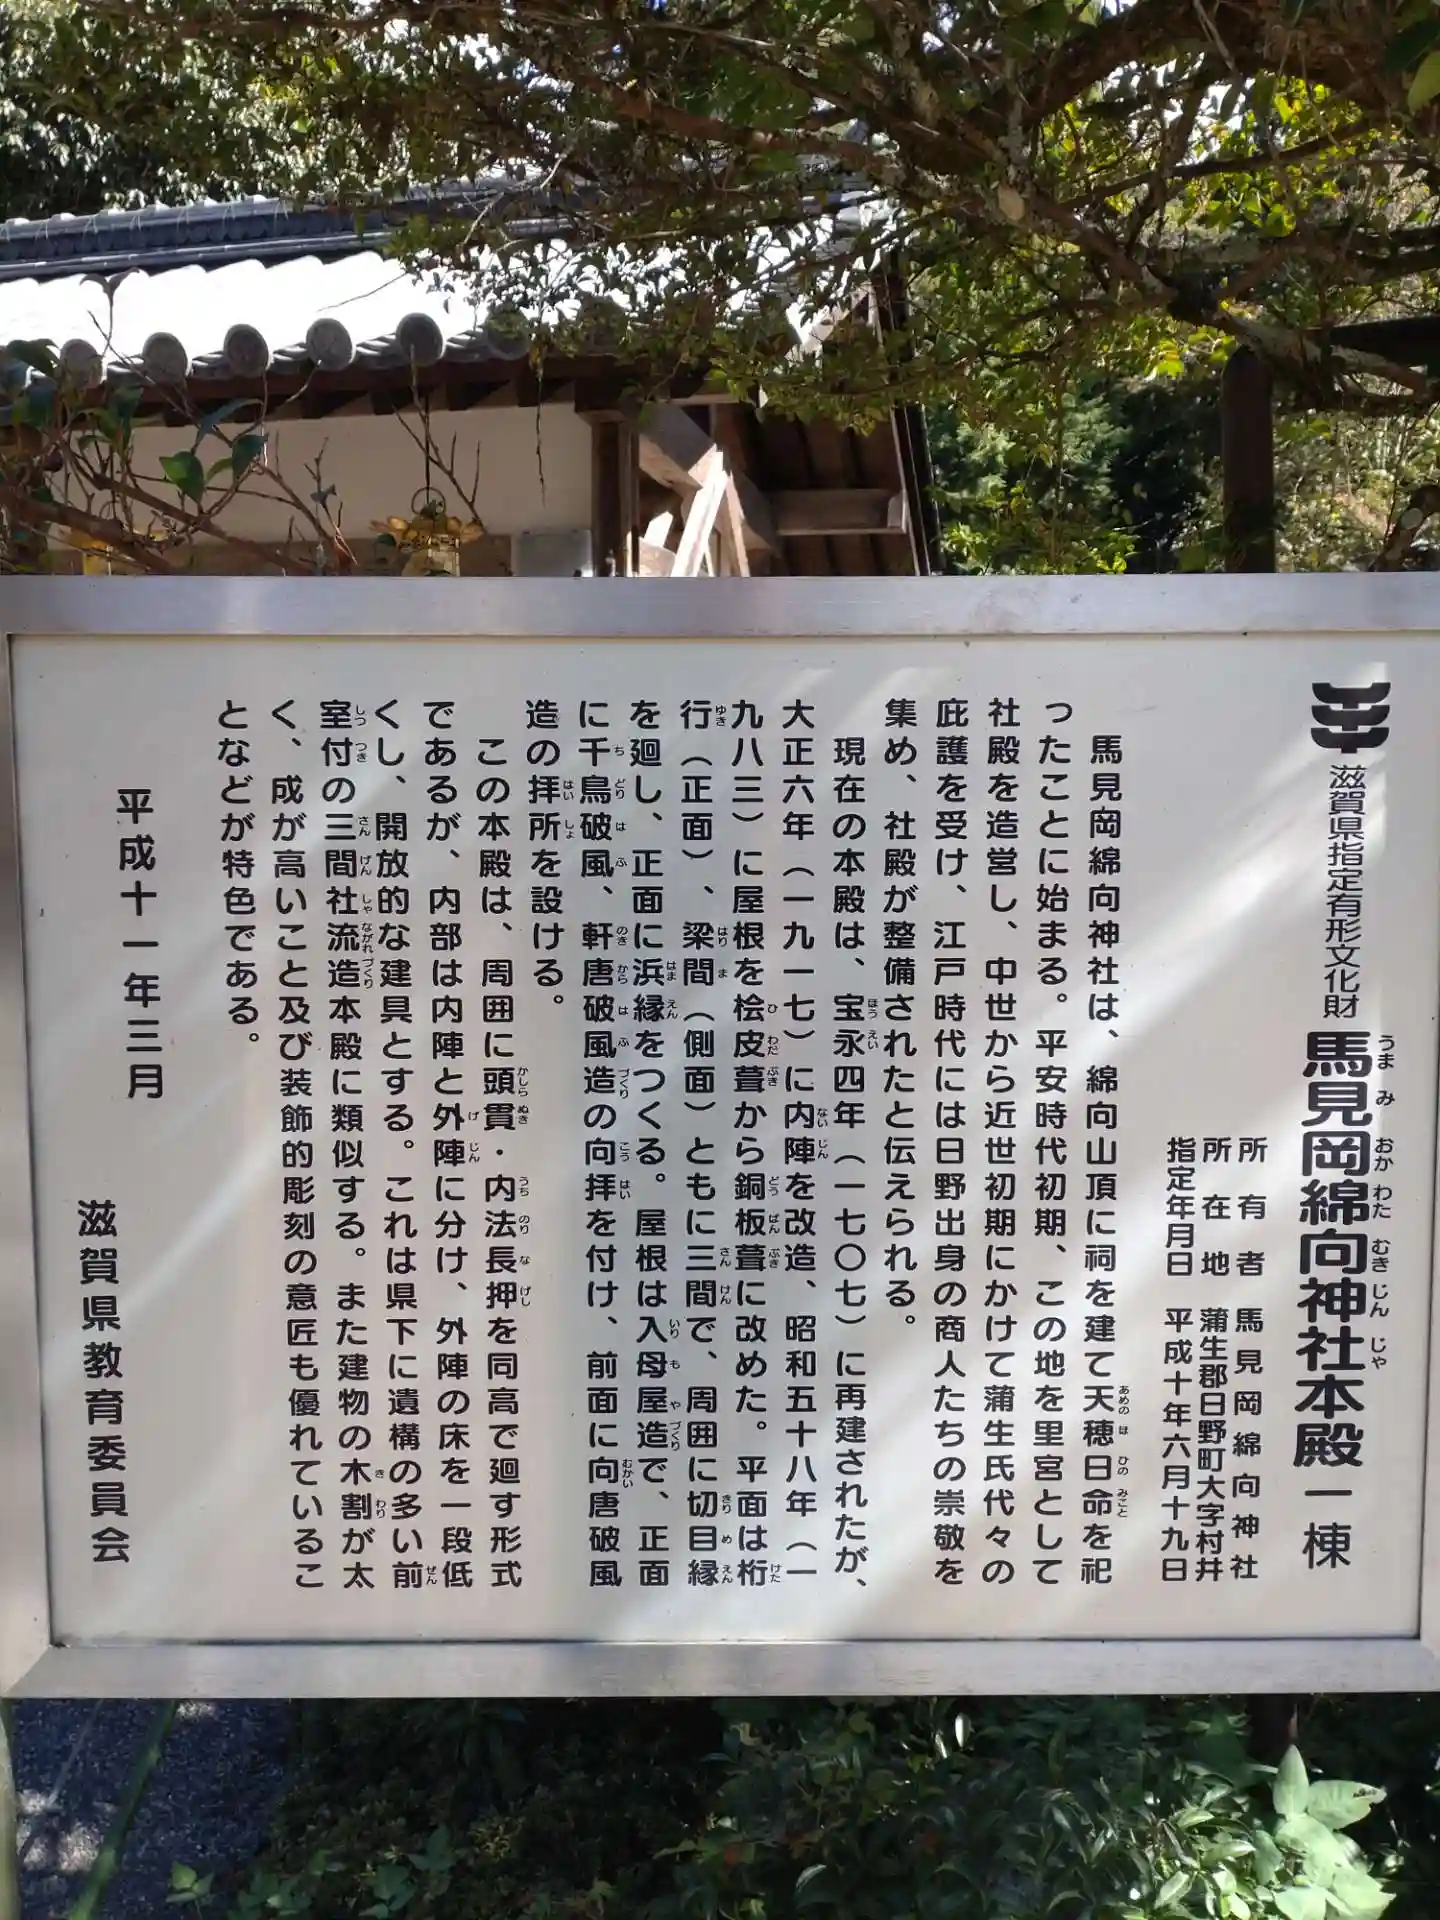 滋賀県指定有形文化財 馬見岡綿向神社本殿 一棟
所有者 馬見岡綿向神社
所在地 蒲生郡日野町大字村井
指定年月日 平成十年六月十九日
馬見岡綿向神社は、綿向山頂に祠を建て天穂日命を祀
ったことに始まる。平安時代初期、この地を里宮として
社殿を造営し、中世から近世初期にかけて蒲生氏代々の
庇護を受け、江戸時代には日野出身の商人たちの崇敬を
集め、社殿が整備されたと伝えられる。
現在の本殿は、宝永四年（一七〇七）に再建されたが、
大正六年（一九一七）に内陣を改造、昭和五十八年（一
九八三）に屋根を桧皮葺から銅板葺に改めた。平面は桁
行（正面）、梁間（側面）ともに三間で、周囲に切目縁
を廻し、正面に浜縁をつくる。屋根は入母屋造で、正面
に千鳥破風、軒唐破風造の向拝を付け、前面に向唐破風
造の拝所を設ける。
この本殿は、周囲に頭貫・内法長押を同高で廻す形式
であるが、内部は内陣と外陣に分け、外陣の床を一段低
くし、開放的な建具とする。これは県下に遺構の多い前
室付の三間社流造本殿に類似する。また建物の木割が太
く、成が高いこと及び装飾的彫刻の意匠も優れているこ
となどが特色である。
平成十一年三月
滋賀県教育委員会